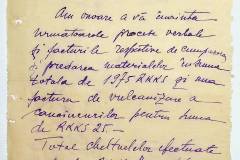 Am onoare a vă înainta
următoarele procese verbale
și facturile respective de cumpărare
și predarea materialelor în suma
totala de 1975 RKKS și una
factura de vulcanizare a
cauciucurilor pentru suma
de RKKS 25 —
Total cheltuelilor efectuate